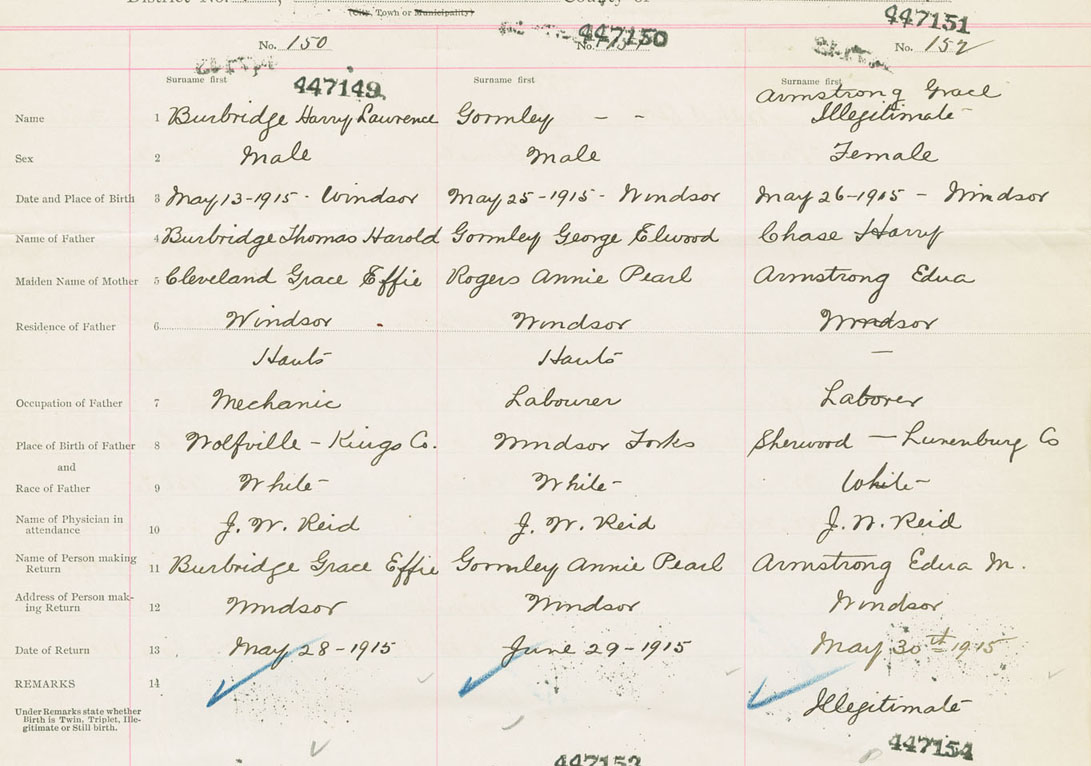 District No. County of
(City, Town or Municipality)
447150 447151
No. 150 No. 151 No. 152
447149
Surname first Surname first Surname first
Armstrong Grace
Name 1 Burbridge Harry Lawrence Gormley - - Illegitimate
Sex 2 Male Male Female
Date and Place of Birth 3 May 13-1915 - Windsor May 25-1915 - Windsor May 26-1915 - Windsor
Name of Father 4 Burbridge Thomas Harold Gormley George Elwood Chase Harry
Maiden Name of Mother 5 Cleveland Grace Effie Rogers Annie Pearl Armstrong Edna
Residence of Father 6 Windsor Windsor Windsor
Hants Hants —
Occupation of Father 7 Mechanic Labourer Laborer
Place of Birth of Father 8 Wolfville - Kings Co. Windsor Forks Sherwood — Lunenburg Co
and
Race of Father 9 White White White
Name of Physician in
attendance 10 J. W. Reid J. W. Reid J. W. Reid
Name of Person making
Return 11 Burbridge Grace Effie Gormley Annie Pearl Armstrong Edna M.
Address of Person mak-
ing Return 12 Windsor Windsor Windsor
Date of Return 13 May 28-1915 June 29-1915 May 30th 1915
REMARKS 14
Under Remarks state whether
Birth is Twin, Triplet, Ille-
gitimate or Still birth.
Illegitimate
447153 447154